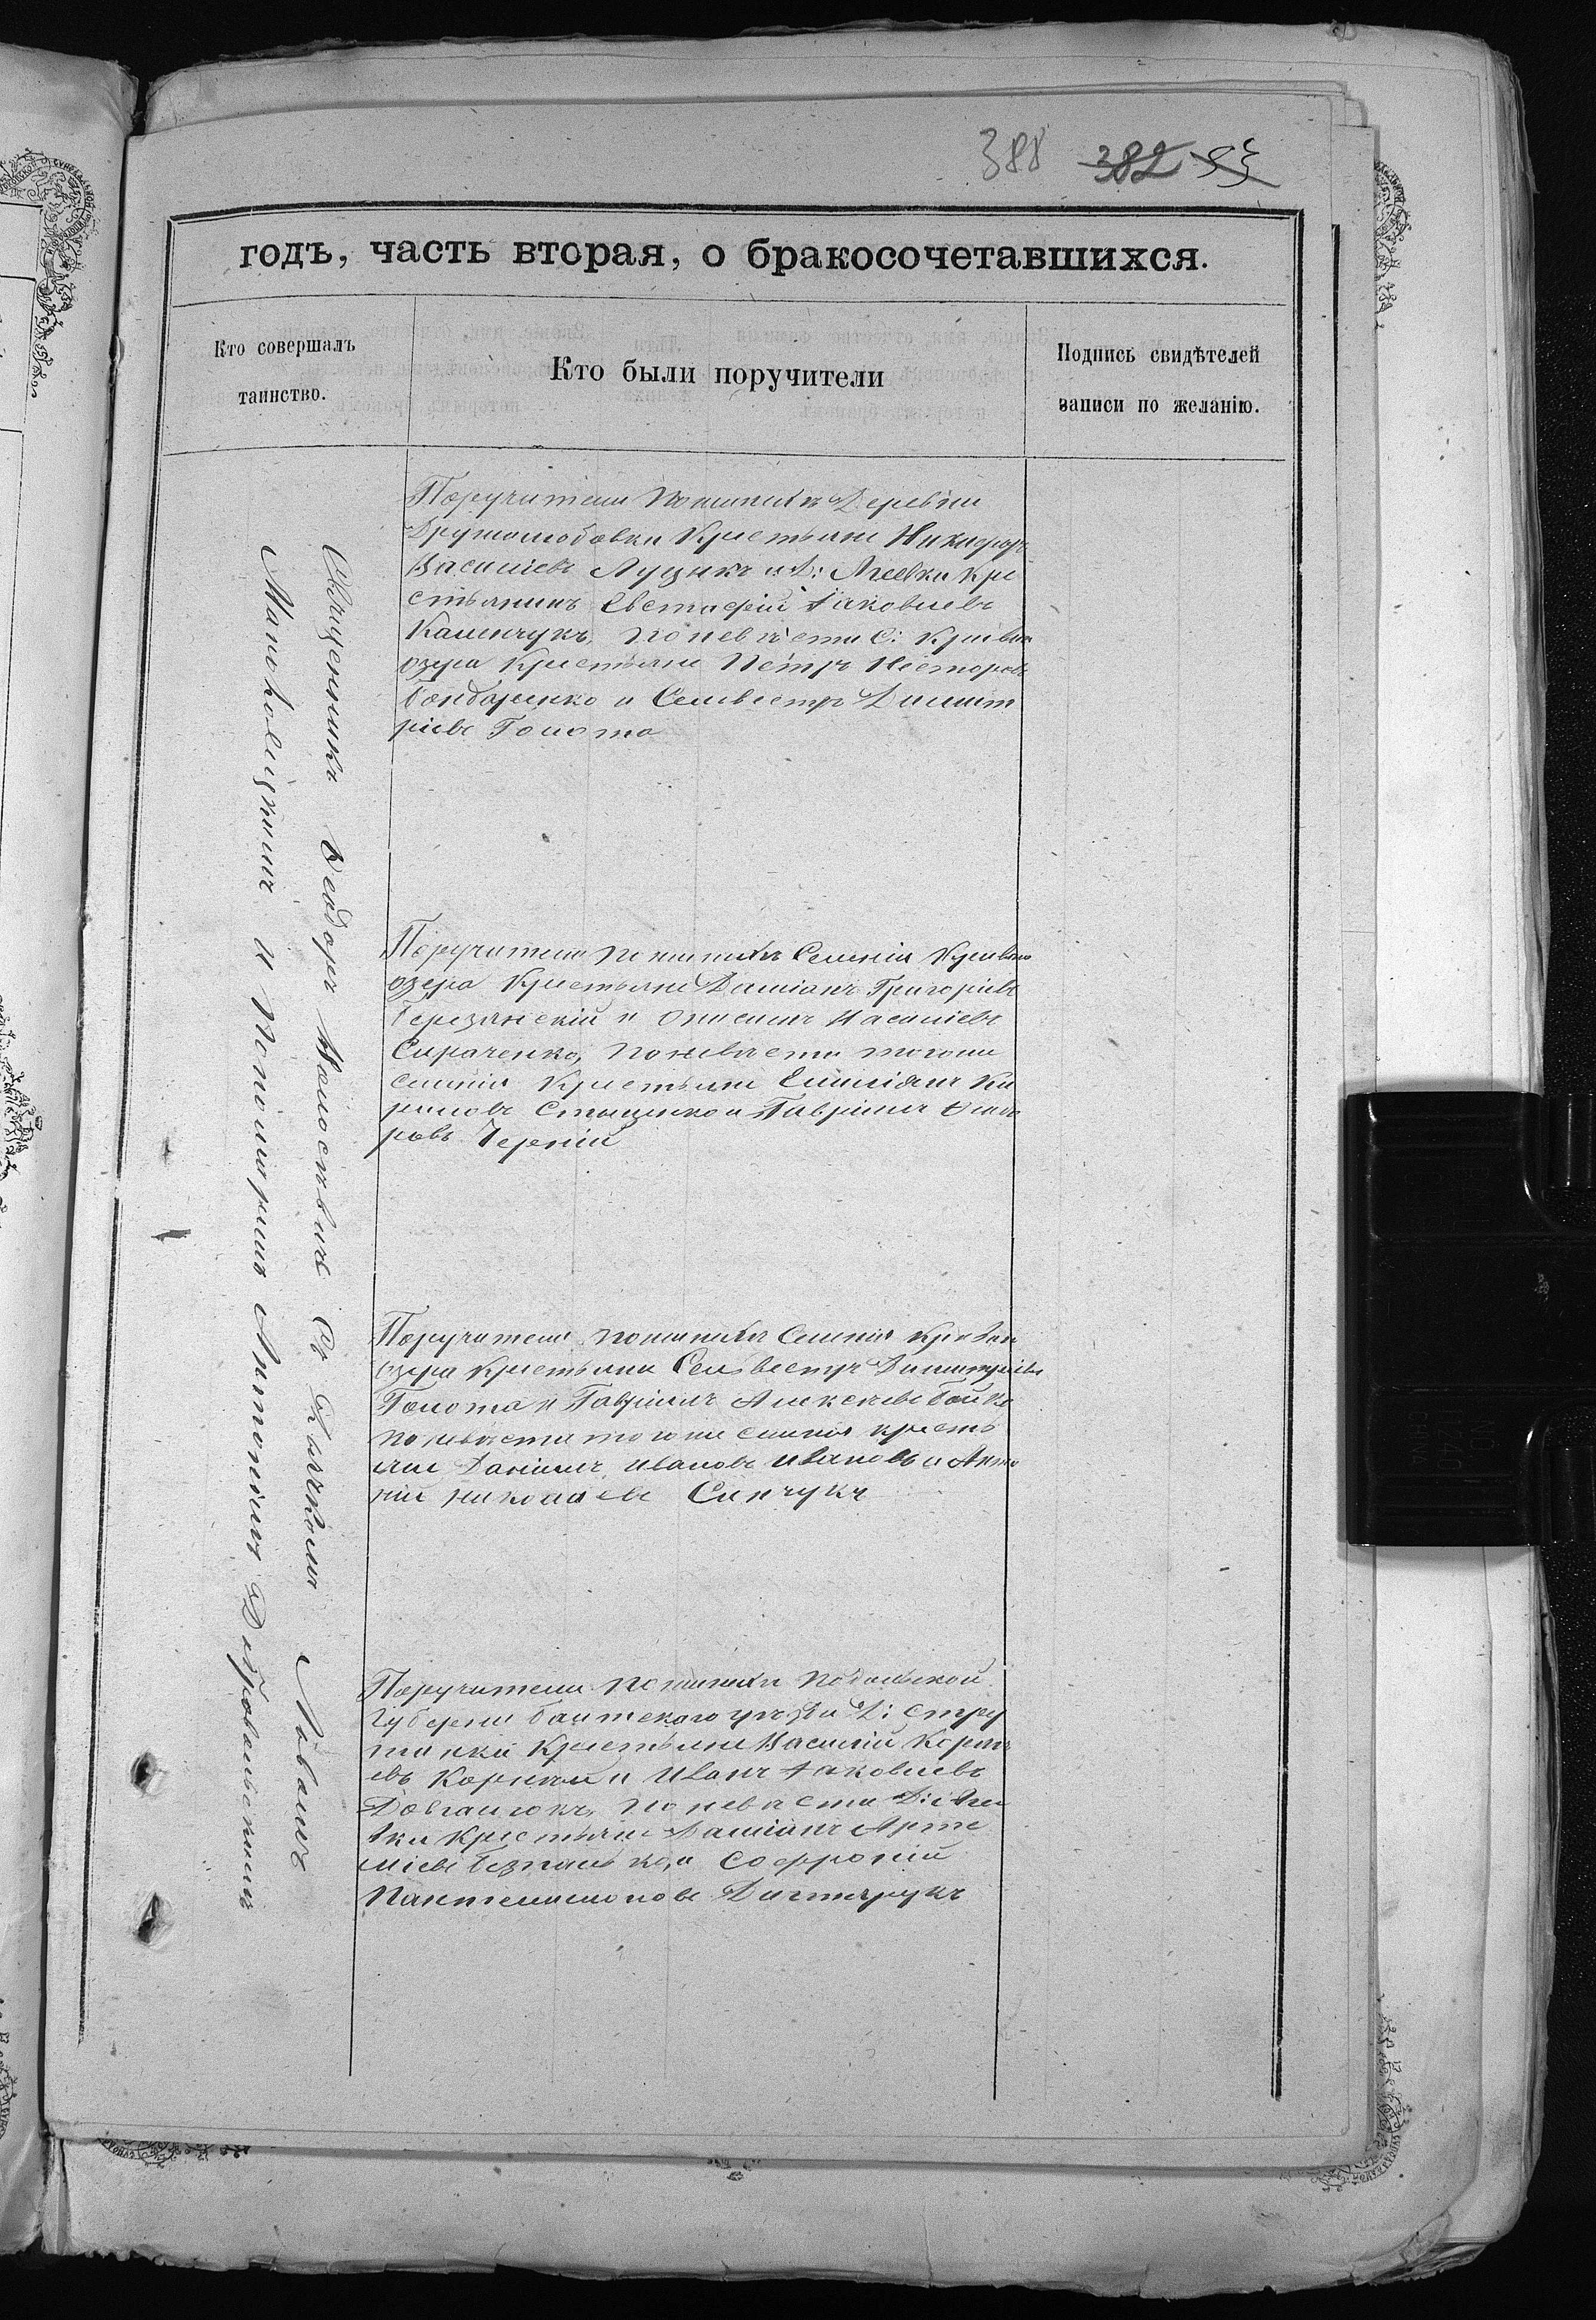 388 382 53
годъ, часть вторая, о бракосочетавшихся.
Кто совершалъ
таинство.
Кто были поручители
Подпись свидѣтелей
записи по желанію.
Священникъ Ѳеодоръ съ Дьячкомъ Львомъ
и Пономаремъ Антоніемъ Дубровольскимъ
Поручители по женихѣ Деревни
Дружелюбовки Крестьяне Никифоръ
Василіевъ Луцикъ и Д: Агеевки Кре
стьянинъ Евстафій Іаковлевъ
Каленчукъ, по невѣстѣ С: Криваго
озера Крестьяне Петръ Несторовъ
Бондаренко и Селивестръ Димит
ріевъ Голота
Поручители по женихѣ Селенія Криваго
озера Крестьяне Даміанъ Григоріевъ
Березянскій и Онисимъ Василіевъ
Сираченко, по невѣсты тогоже
селенія Крестьяне Емиліанъ Ки
риловъ Стаценко и Гавріилъ Ѳеодо
ровъ Черній
Поручители по женихѣ Селенія Криваго
озера Крестьяне Селивестръ Димитріевъ
Голота и Гавріилъ Алексѣевъ Бойко
по невѣсти тогоже селенія кресть
яне Даніилъ Ивановъ Ивановъ и Анто
ній Николаевъ Синчукъ
Поручители по женихѣ Подольской
Губерніи Балтскаго уѣзда Д: Стру
тинки Крестьяне Василій Корни
евъ Корной и Иванъ Іаковлевъ
Довгалюкъ, по невѣсти Д:
Крестьяне Даміанъ Арте
міевъ Безпалько, и Софроній
Пантелимоновъ Дмитрукъ